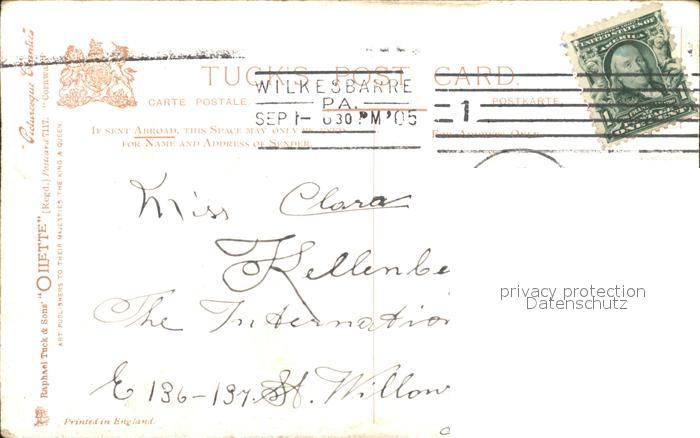 TUCK'S POST CARD.
CARTE POSTALE.
POSTKARTE.
WILKESBARRE
PA.
SEP 1- 630 PM '05
1
IF SENT ABROAD, THIS SPACE MAY ONLY BE USED
FOR NAME AND ADDRESS OF SENDER.
FOR ADDRESS ONLY.
UNITED STATES OF
AMERICA
ONE CENT
Miss Clara
Kellenbe
The Internation
E 136-137. St. Willow
privacy protection
Datenschutz
Printed in England.
Raphael Tuck & Sons' "OILETTE" [Regd.] Postcard 7117. "Cornwall"
"Picturesque Counties"
ART PUBLISHERS TO THEIR MAJESTIES THE KING & QUEEN.